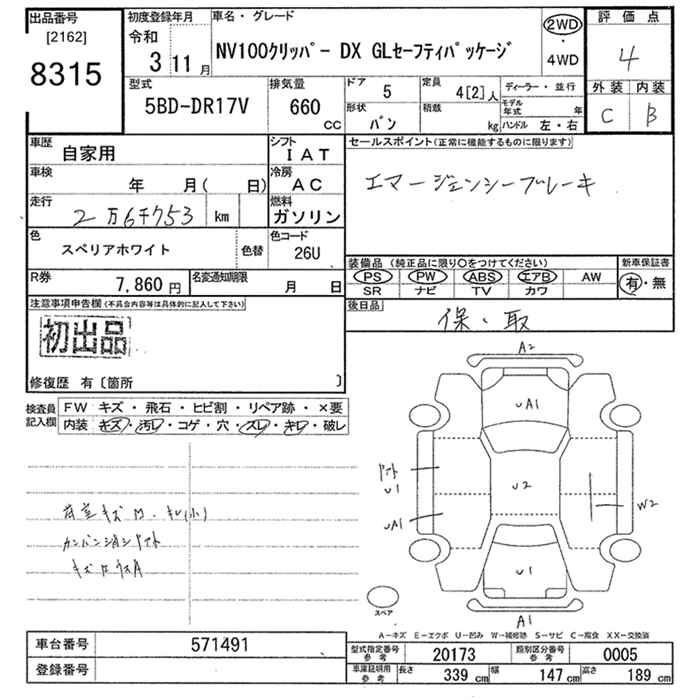 出品番号 [2162] 8315
初度登録年月 令和 3 11 月
車名・グレード NV100クリッパー DX GLセーフティパッケージ
2WD ・ 4WD
評価点 4
外装 C 内装 B
型式 5BD-DR17V
排気量 660 CC
ドア 5
形状 バン
定員 4[2] 人
積載 kg
ディーラー・並行
モデル年式 年
ハンドル 左・右
車歴 自家用
シフト IAT
車検 年 月( 日)
冷房 AC
走行 2万6千753 km
燃料 ガソリン
色 スペリアホワイト 色替
色コード 26U
R券 7,860 円
名変通知期限 月 日
セールスポイント(正常に機能するものに限ります)
エマージェンシーブレーキ
装備品 (純正品に限り○をつけてください) 新車保証書
PS PW ABS エアB AW 有・無
SR ナビ TV カワ
後日品
保・取
注意事項申告欄 (不具合内容等は具体的に記入して下さい)
初出品
修復歴 有〔箇所 〕
検査員記入欄
FW キズ・飛石・ヒビ割・リペア跡・×要
内装 キズ・汚レ・コゲ・穴・スレ・キレ・破レ
A2
uA1
u1
uA1
u2
W2
u1
A1
スペア
A-キズ E-エクボ U-凹み W-補修跡 S-サビ C-腐食 XX-交換済
車台番号 571491
登録番号
型式指定番号 参考 20173 類別区分番号 参考 0005
車庫証明用 参考 長さ 339 cm 幅 147 cm 高さ 189 cm